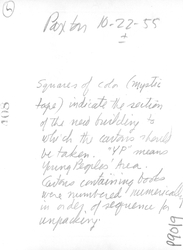 5
Paxton 10-22-55
±
Squares of color (mystic
tape) indicate the section
of the new building to
which the cartons should
be taken. "YP" means
Young Peoples' Area.
Cartons containing books
were numbered numerically
in order of sequence for
unpacking
99019